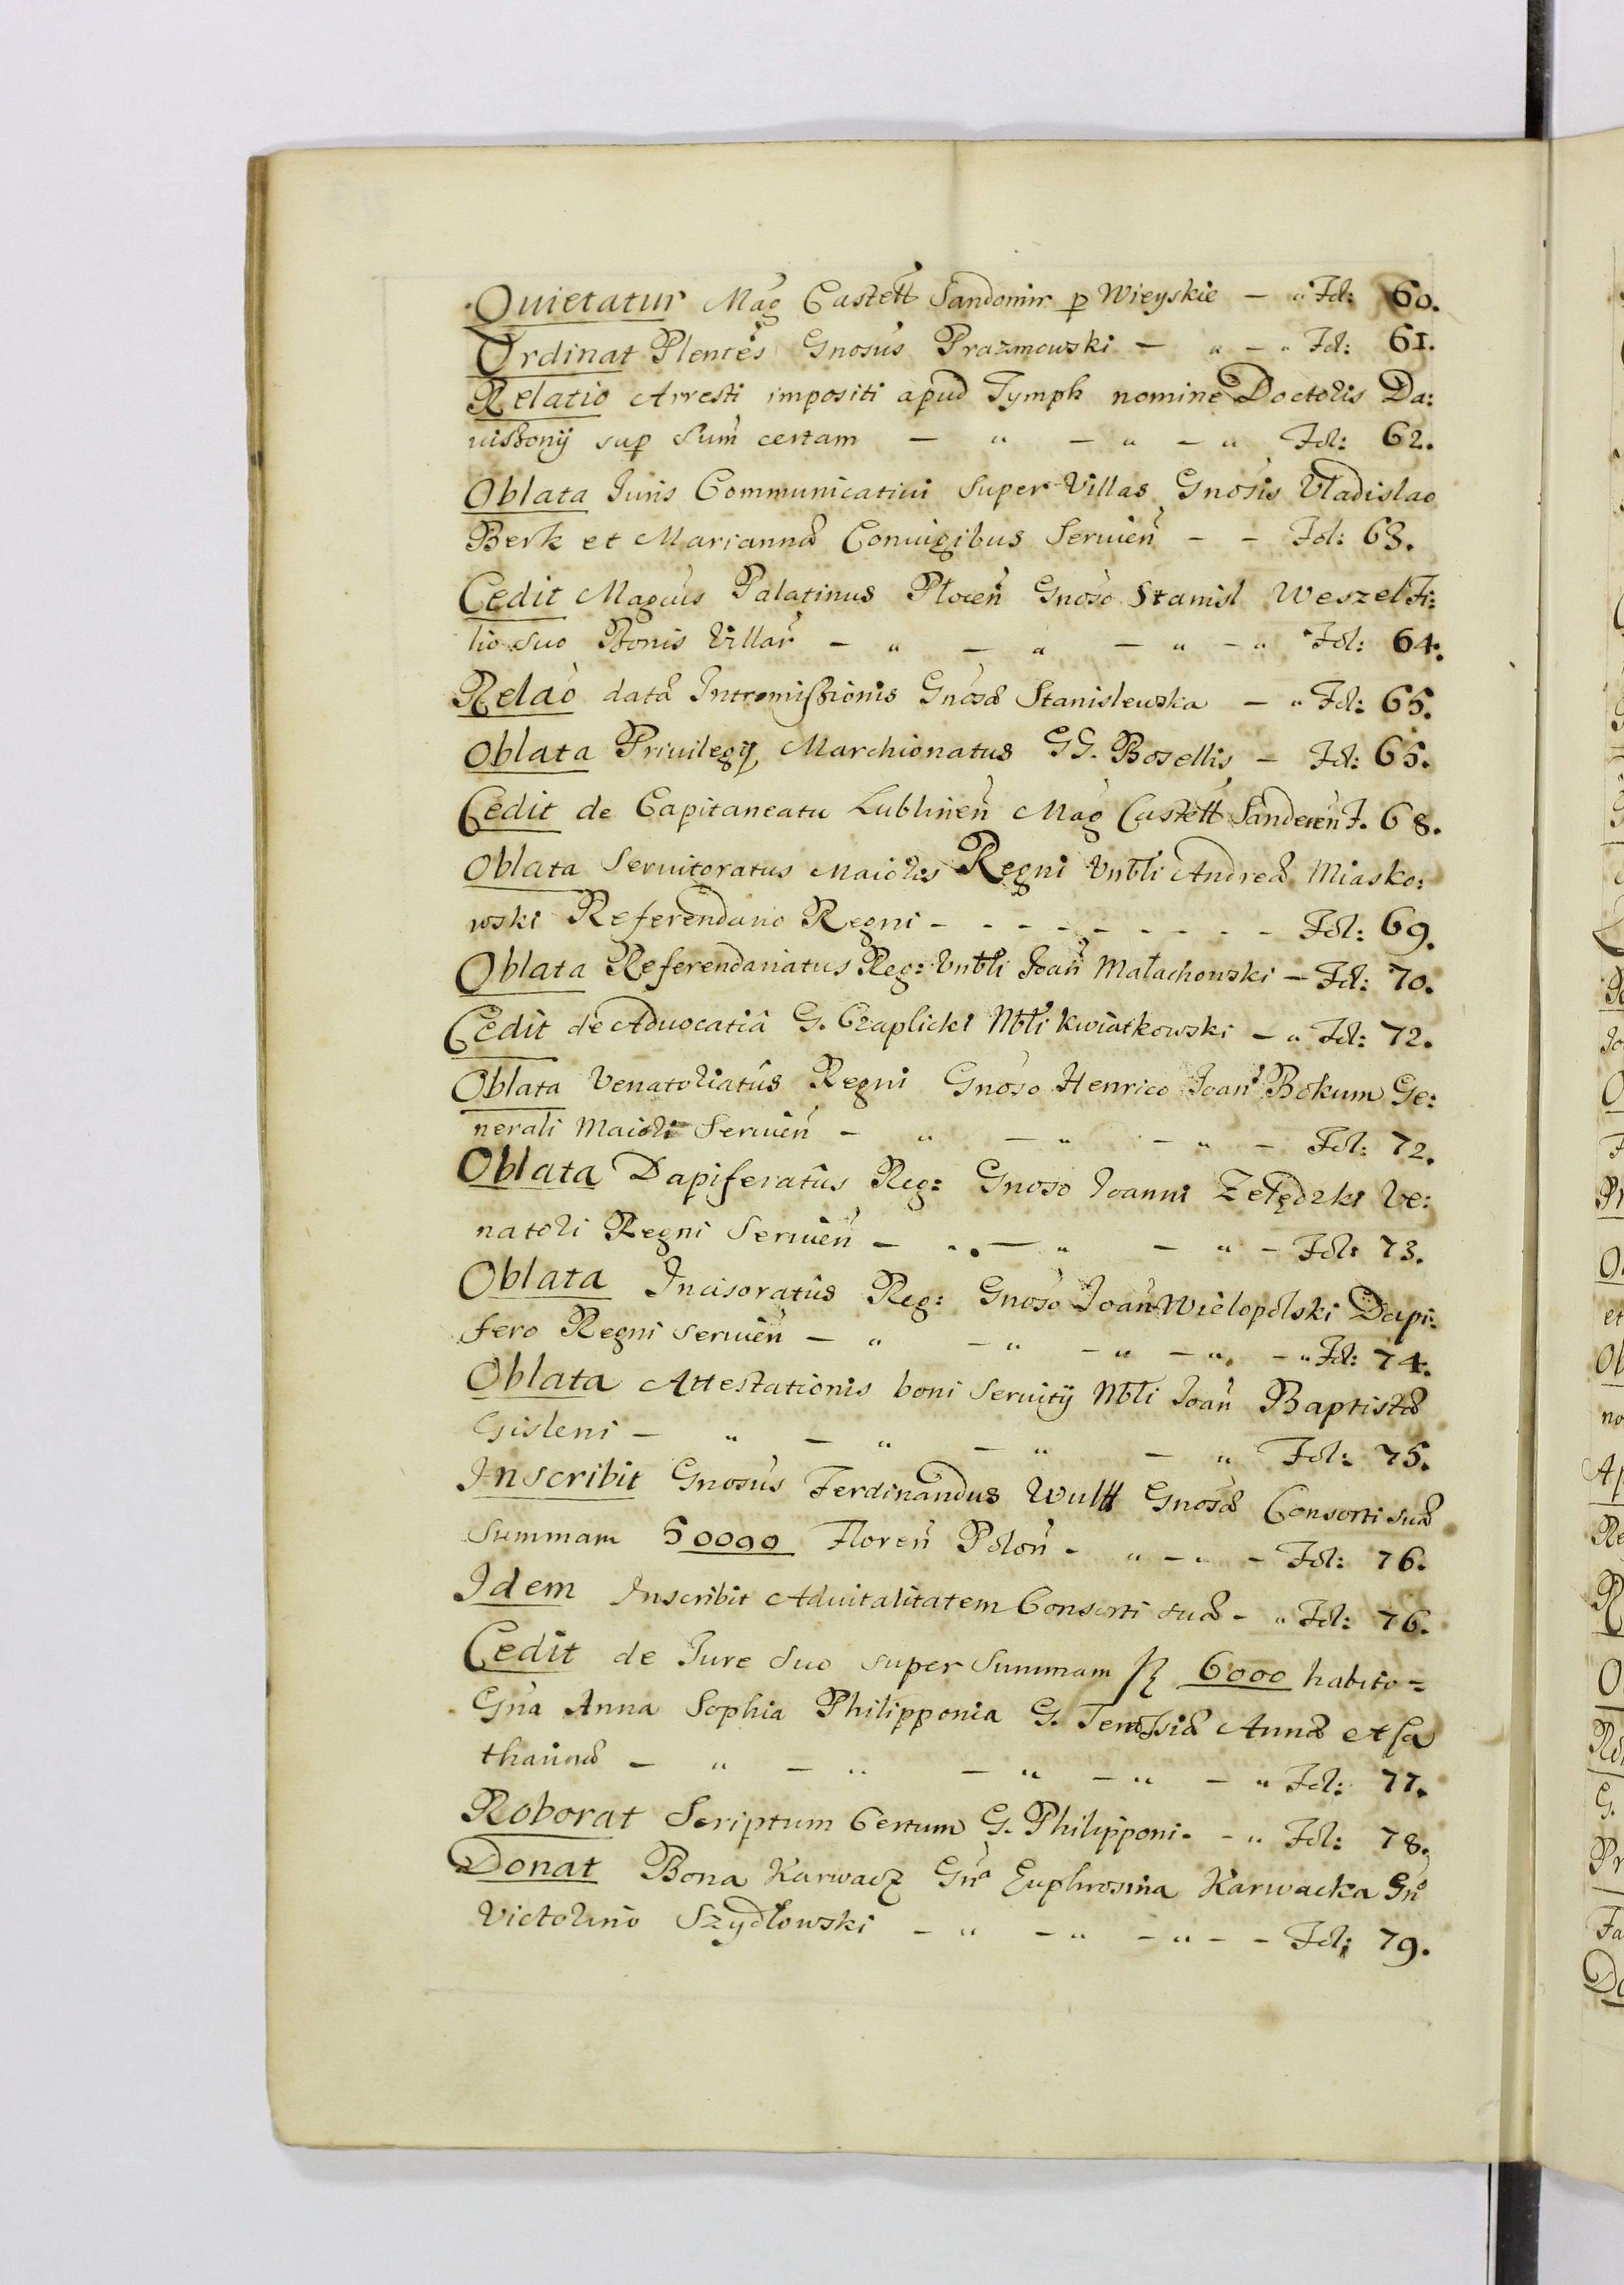 Quietatur Mag Castell Sandomir p Wieyskie — " Fol: 60.
Ordinat Plentes Gnosus Prazmowski — " — " Fol: 61.
Relatio Arresti impositi apud Tymph nomine Doctoris Da:
vissonij sup Sum certam — " — " — " Fol: 62.
Oblata Juris Communicativi super Villas Gnosis Vladislao
Berk et Mariannæ Coniugibus Servien — — Fol: 63.
Cedit Magcus Palatinus Plocen Gnoso Stanisl Weszel Fi:
lio suo Bonis Villar — " — " — " — " Fol: 64.
Relao datæ Intromissionis Gnosæ Stanislewska — " Fol: 65.
Oblata Privilegij Marchionatus GG. Bosellis — Fol: 65.
Cedit de Capitaneatu Lublinen Mag Castell F. 68.
Oblata Servitoratus Maioris Regni Vnbli Andreæ Miasko:
wski Referendario Regni - - - - - - - - - Fol: 69.
Oblata Referendariatus Reg: Vnbli Joan Małachowski — Fol: 70.
Cedit de Advocatiâ G. Czaplicki Nbli Kwiatkowski — " Fol: 72.
Oblata Venatoriatûs Regni Gnoso Henrico Joan Bokum Ge:
nerali Maiori Servien — " — " — " — Fol: 72.
Oblata Dapiferatûs Reg: Gnoso Joanni Zełędzki Ve:
natori Regni Servien — " — " — " — Fol: 73.
Oblata Incisoratûs Reg: Gnoso Joan Wielopolski Dapi:
fero Regni servien — " — " — " — " — " Fol: 74.
Oblata Attestationis boni Servitij Nbli Joan Baptistæ
Gisleni — " — " — " — " Fol: 75.
Inscribit Gnosus Ferdinandus Wulff Gnosæ Consorti suæ
Summam 50000 Floren Polon - " — " — Fol: 76.
Idem Inscribit Advitalitatem Consorti suæ - " Fol: 76.
Cedit de Jure suo super Summam 6000 habito =
Gna Anna Sophia Philipponia G. Annæ et Ca
tharinæ — " — " — " — " — " Fol: 77.
Roborat Scriptum Certum G. Philipponi. - " Fol: 78.
Donat Bona Karwacz Gna Euphrosina Karwacka Gno
Victorino Szydłowski — " — " — " — — Fol: 79.